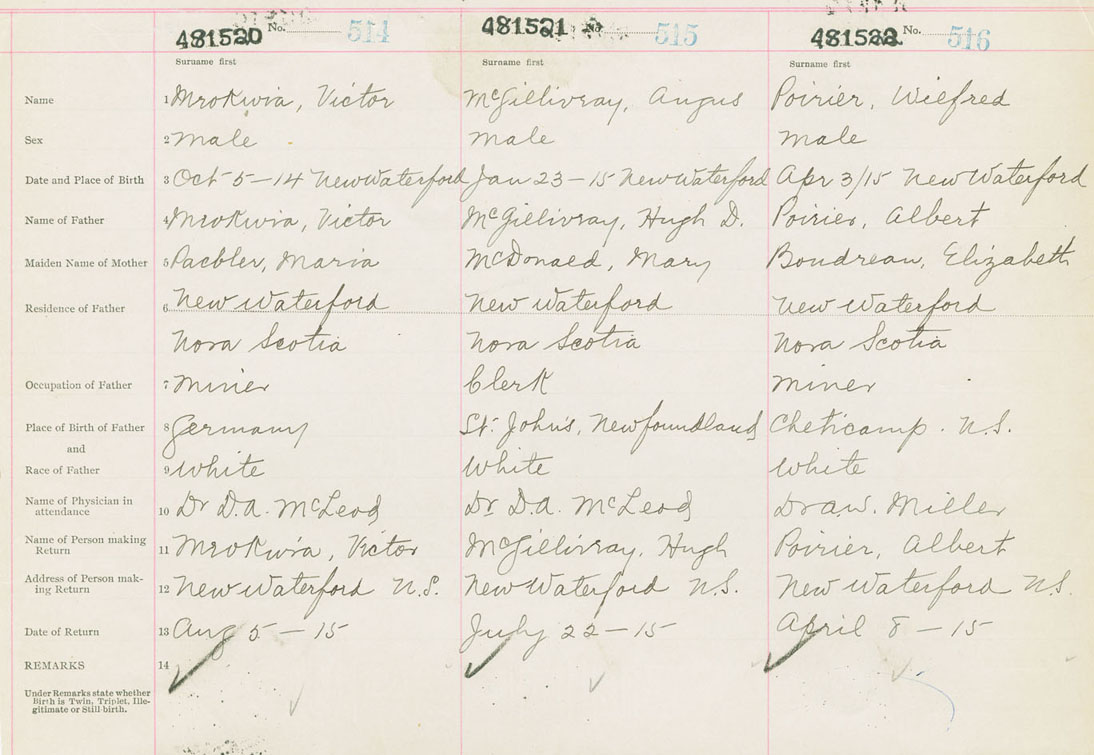 481520 No. 514 481521 No. 515 481522 No. 516
Surname first Surname first Surname first
Name 1 Mrokwia, Victor McGillivray, Angus Poirier, Wilfred
Sex 2 male male male
Date and Place of Birth 3 Oct 5-14 New Waterford Jan 23-15 New Waterford Apr 3/15 New Waterford
Name of Father 4 Mrokwia, Victor McGillivray, Hugh D. Poirier, Albert
Maiden Name of Mother 5 Maria McDonald, Mary Boudreau, Elizabeth
Residence of Father 6 New Waterford New Waterford New Waterford
Nova Scotia Nova Scotia Nova Scotia
Occupation of Father 7 miner Clerk miner
Place of Birth of Father 8 Germany St. John's, Newfoundland Cheticamp. N.S.
and
Race of Father 9 White White White
Name of Physician in
attendance 10 Dr D.A. McLeod Dr D.A. McLeod Dr A.W. Miller
Name of Person making
Return 11 Mrokwia, Victor McGillivray, Hugh Poirier, Albert
Address of Person mak-
ing Return 12 New Waterford N.S. New Waterford N.S. New Waterford N.S.
Date of Return 13 Aug 5-15 July 22-15 April 8-15
REMARKS 14
Under Remarks state whether
Birth is Twin, Triplet, Ille-
gitimate or Still-birth.